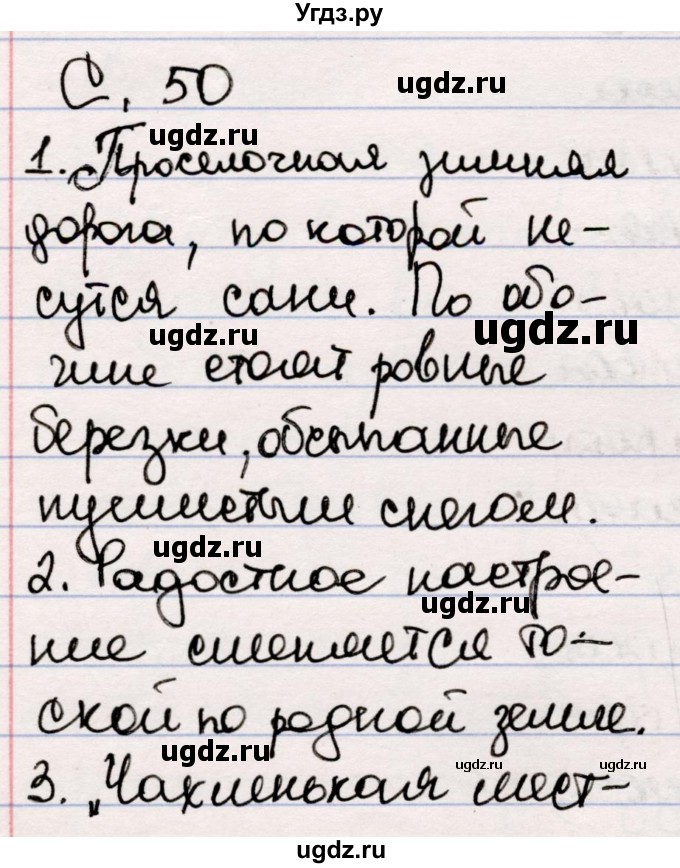 Угдз.ру
С. 50
ugdz.ru
ugdz.ru
1. Проселочная зимняя
ugdz.ru
дорога, по которой не-
сутся сани. По обо-
ugdz.ru
ugdz.ru
чине стоят ровные
березки, обсыпанные
пушистым снегом.
ugdz.ru
2. Радостное настрое-
ugdz.ru
ние сменяется то-
ской по родной земле.
ugdz.ru
ugdz.ru
ugdz.ru
3. „Чахленькая мест-
ugdz.ru